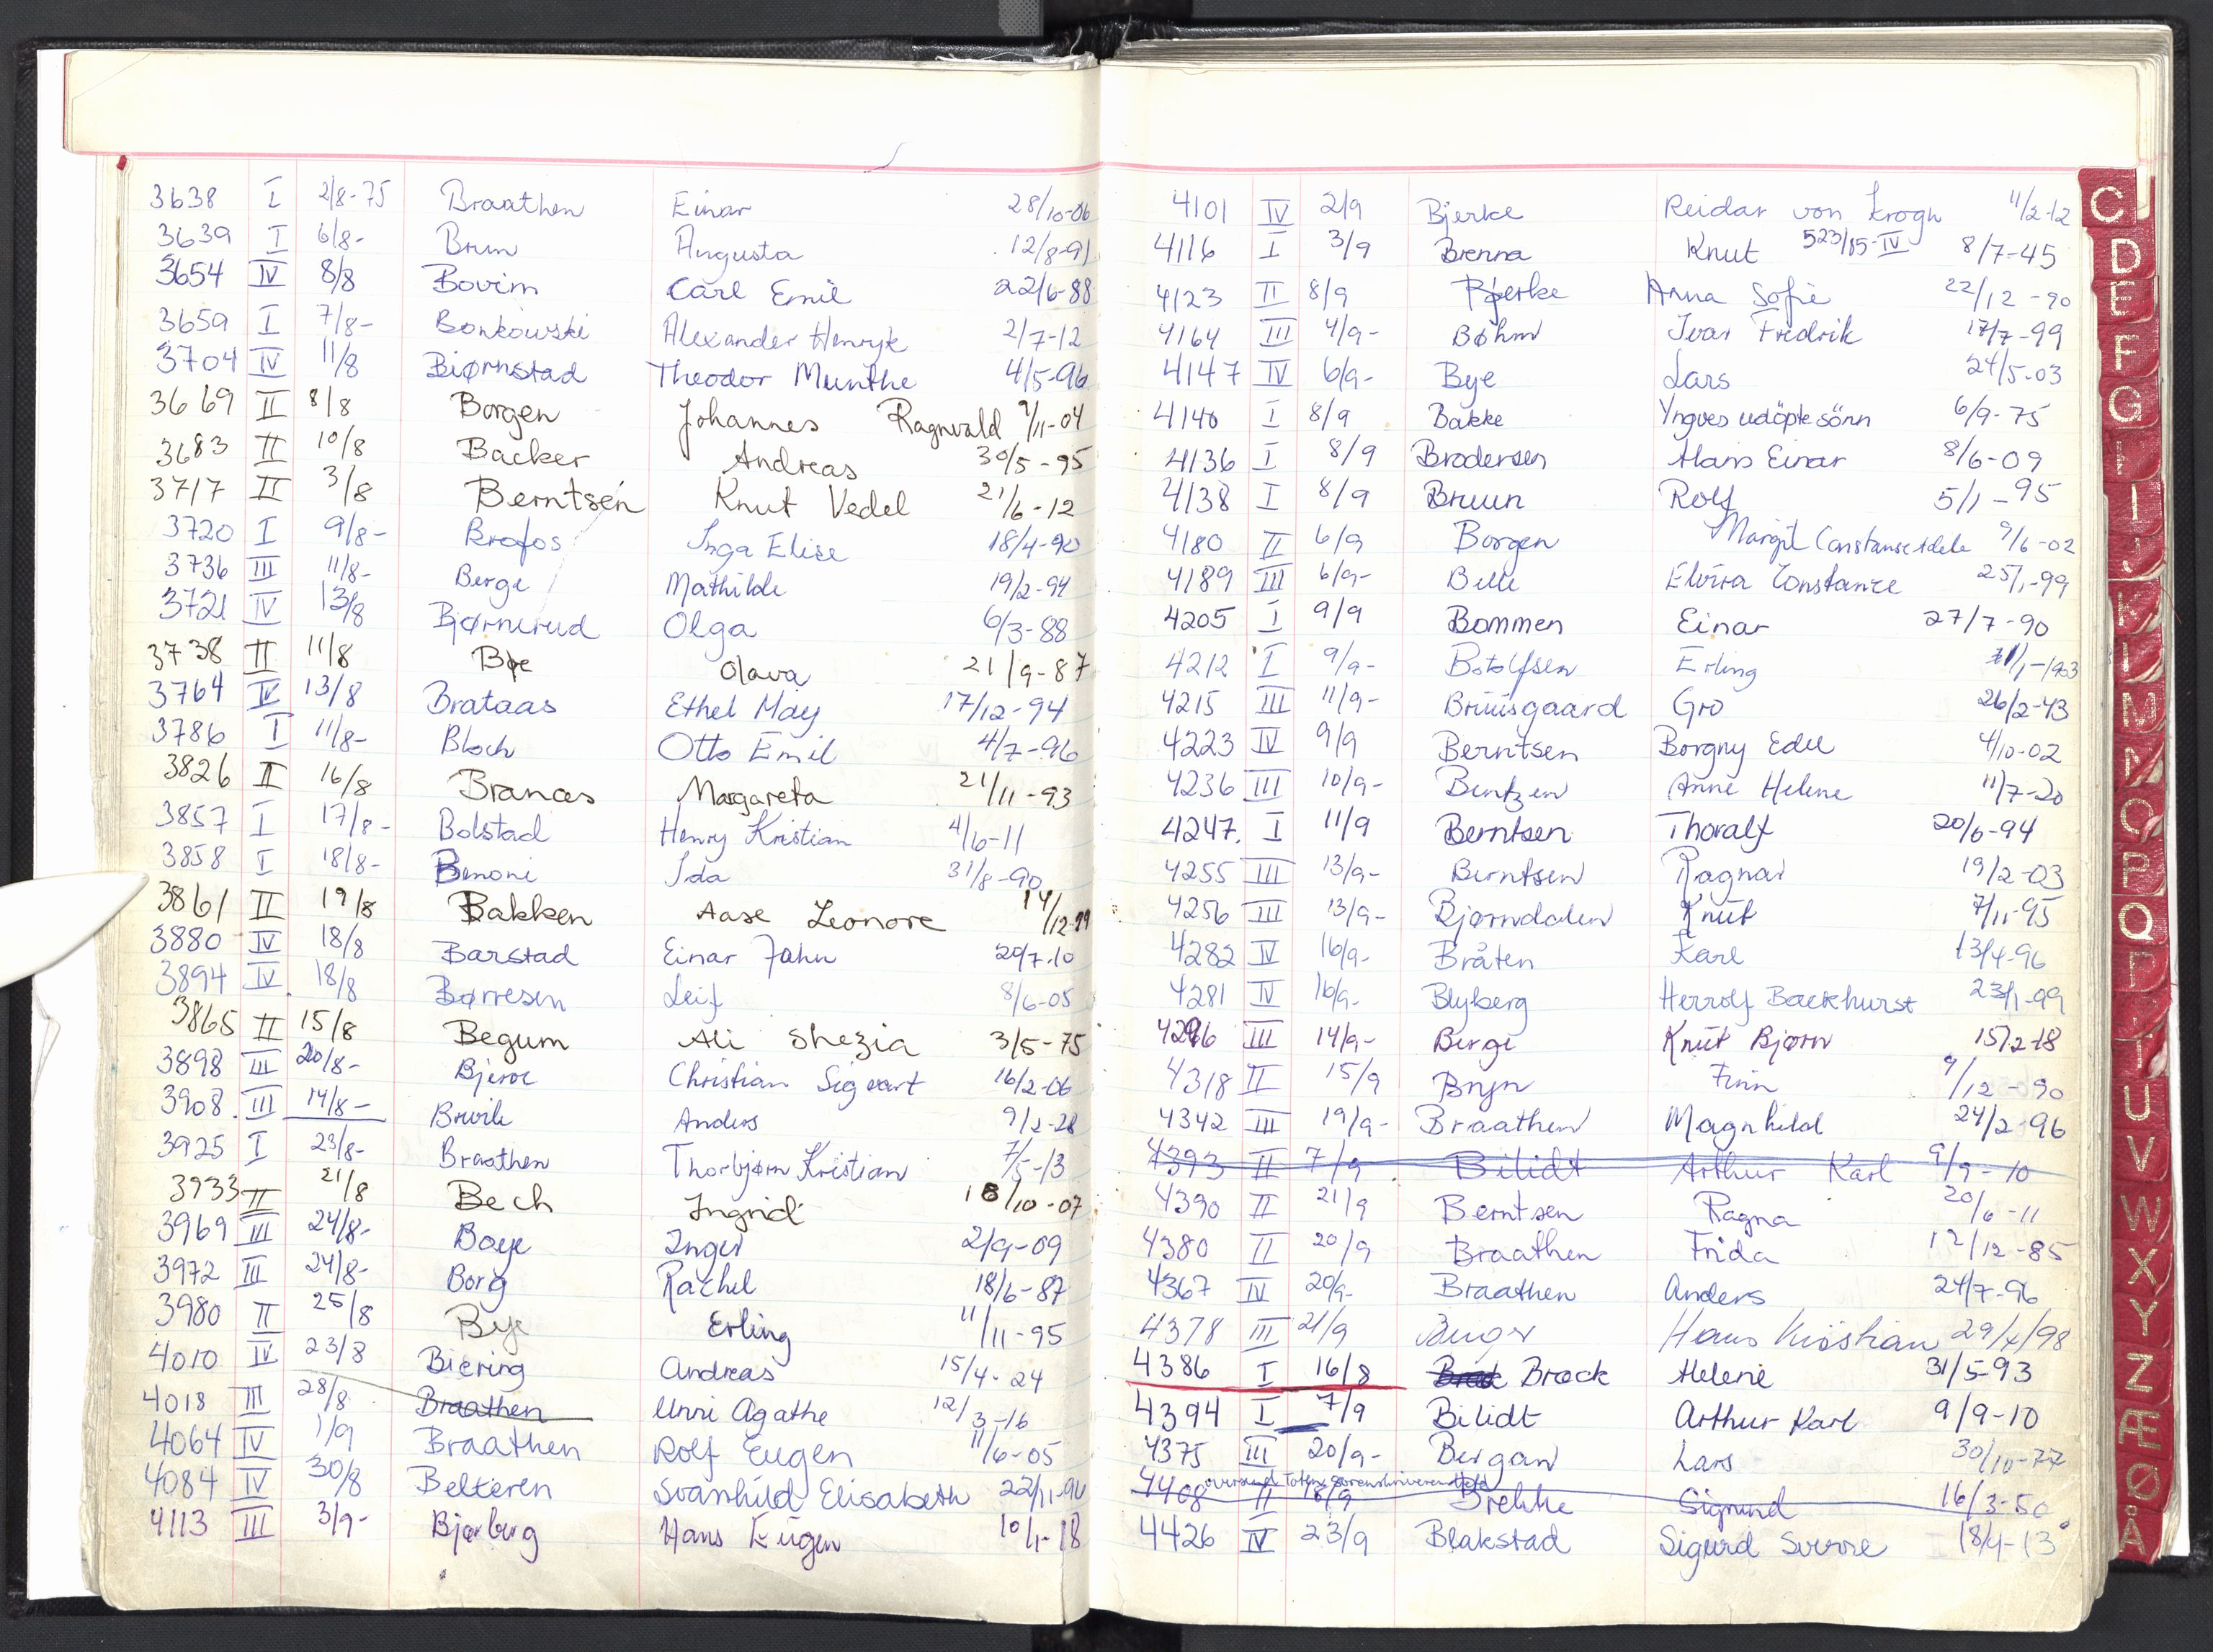 3638 I 2/8-75 Braathen Einar 28/10-06
3639 I 6/8- Brun Augusta 12/8-91
3654 IV 8/8 Bovim Carl Emil 22/6-88
3659 I 7/8- Bonkowski Alexander Henryk 2/7-12
3704 IV 11/8 Bjørnstad Theodor Munthe 4/5-96
3669 II 8/8 Borgen Johannes Ragnvald 9/11-04
3683 II 10/8 Backer Andreas 30/5-95
3717 II 3/8 Berntsen Knut Vedel 21/6-12
3720 I 9/8- Brofos Inga Elise 18/4-90
3736 III 11/8- Berge Mathilde 19/2-94
3721 IV 13/8 Bjørnerud Olga 6/3-88
3738 II 11/8 Bøe Olava 21/9-87
3764 IV 13/8 Brataas Ethel May 17/12-94
3786 I 11/8- Bloch Otto Emil 4/7-96
3826 II 16/8 Branæs Margareta 21/11-93
3857 I 17/8- Bolstad Henry Kristian 4/6-11
3858 I 18/8- Benoni Ida 31/8-90
3861 II 19/8 Bakken Aase Leonore 14/12-99
3880 IV 18/8 Barstad Einar John 20/7.10
3894 IV 18/8 Børresen Leif 8/6-05
3865 II 15/8 Begum Ali Shezia 3/5-75
3898 III 20/8- Bjerve Christian Sigvart 16/2-06
3908 III 14/8- Brevik Anders 9/2-28
3925 I 23/8- Braathen Thorbjørn Kristian 7/5-13
3933 II 21/8 Bech Ingrid 18/10-07
3969 III 24/8- Boye Inger 2/9-09
3972 III 24/8- Borg Rachel 18/6-87
3980 II 25/8 Bye Erling 11/11-95
4010 IV 23/8 Biering Andreas 15/4-24
4018 III 28/8 Braathen Unni Agathe 12/3-16
4064 IV 1/9 Braathen Rolf Eugen 11/6-05
4084 IV 30/8 Belteren Svanhild Elisabeth 22/11-96
4113 III 3/9- Bjerberg Hans Eugen 10/1-18
4101 IV 2/9 Bjerke Reidar von Krogh 11/2-12
4116 I 3/9 Brenna Knut 523/85-IV 8/7-45
4123 II 8/9 Bjerke Anna Sofie 22/12-90
4164 III 4/9- Bøhm Ivar Fredrik 17/7-99
4147 IV 6/9- Bye Lars 24/5-03
4140 I 8/9 Bakke Yngves udöpte sönn 6/9-75
4136 I 8/9 Brodersen Hans Einar 8/6-09
4138 I 8/9 Bruun Rolf 5/1-95
4180 II 6/9 Borgen Margit Constanse Adele 9/6-02
4189 III 6/9- Belle Elvira Constance 25/1-99
4205 I 9/9 Bommen Einar 27/7-90
4212 I 9/9- Botolfsen Erling /1-1903
4215 III 11/9- Bruusgaard Gro 26/2-43
4223 IV 9/9 Berntsen Borgny Edel 4/10-02
4236 III 10/9- Bentzen Anne Helene 11/7-20
4247. I 11/9 Berntsen Thoralf 20/6-94
4255 III 13/9- Berntsen Ragnar 19/2-03
4256 III 13/9- Bjørndalen Knut 7/11-95
4282 IV 16/9- Bråten Karl 13/4-96
4281 IV 16/9- Blyberg Herrolf Backhurst 23/1-99
4296 III 14/9- Berge Knut Bjørn 15/2-18
4318 II 15/9 Bryn Finn 9/12-90
4342 III 19/9- Braathen Magnhild 24/2-96
4393 II 7/9 Bilidt Arthur Karl 9/9-10
4390 II 21/9 Berntsen Ragna 20/6-11
4380 II 20/9 Braathen Frida 12/12-85
4367 IV 20/9- Braathen Anders 24/7-96
4378 III 21/9 Berger Hans Kristian 29/4/98
4386 I 16/8 Brock Helene 31/5-93
4394 I 7/9 Bilidt Arthur Karl 9/9-10
4375 III 20/9- Bergan Lars 30/10-77
oversendt Toten sorenskriverembete
4408 II 8/9 Brekke Sigrund 16/3-50
4426 IV 23/9 Blakstad Sigurd Sverre 18/4-13
C
D
E
F
G
H
I
J
K
L
M
N
O
P
Q
R
T
U
V
W
X
Y
Z
Æ
Ø
Å